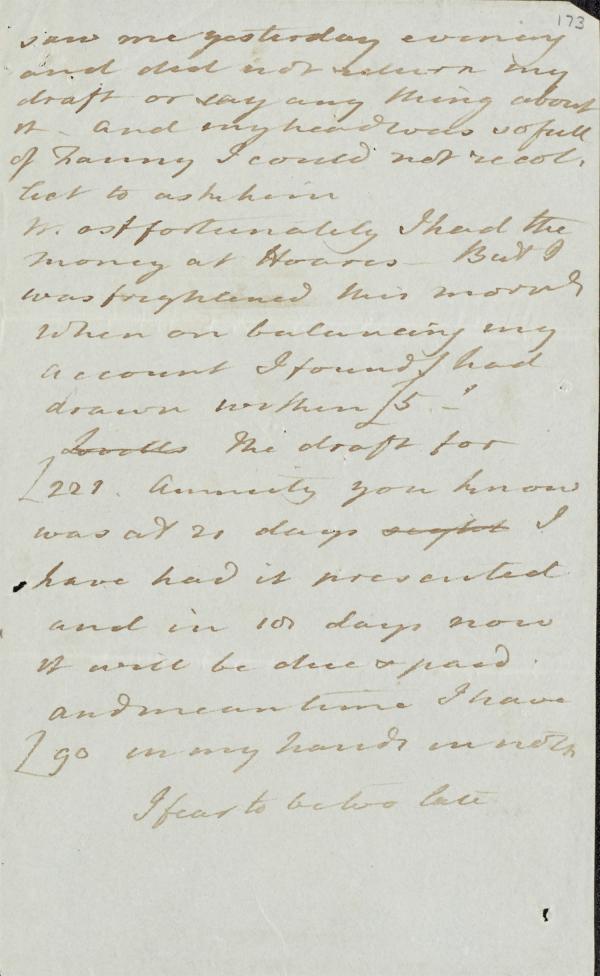 173
saw me yesterday evening
and did not return my
draft or say any thing about
it - and my head was so full
of Fanny I could not recol-
lect to ask him
fortunately I had the
money at Hoares - But I
was frightened this morng
when on balancing my
account I found I had
drawn within £5 -
the draft for
£221. Annuity you know
was at 21 days sight I
have had it presented
and in 10 days now
it will be due & paid.
and mean time I have
£90 in my hands in notes
I fear to be too late